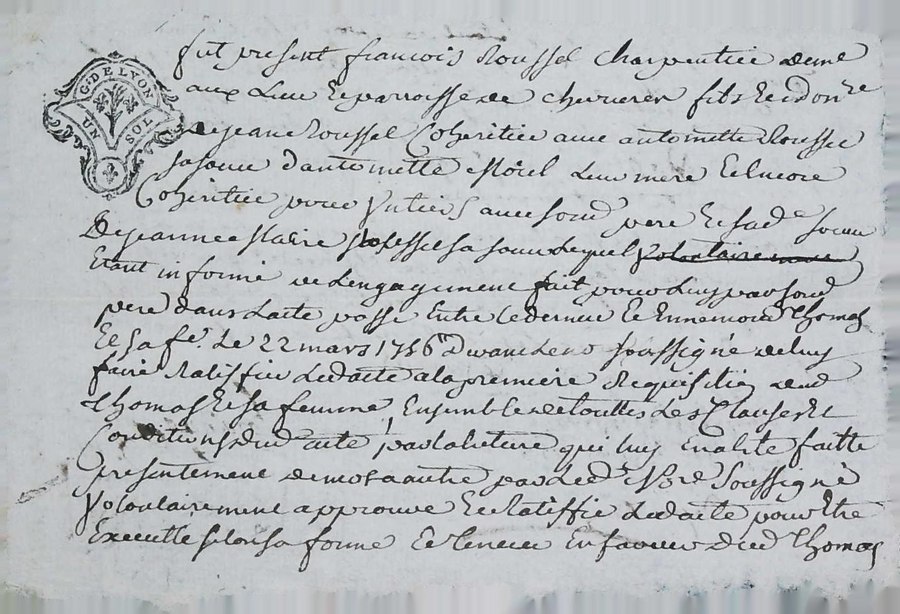 G. DE LYON
UN SOL
fut present francois Roussel charpentier
aux Lieu & parroisse de chevrieres fils & don.re
de jean Roussel Coheritier avec antoinette Roussel
sa soeur d'antoinette Morel Leur mere & Encore
Coheritier pour Un tiers avec son d. pere & sa d.e soeur
De jeanne Marie Roussel sa soeur Lequel volontairement
Etant informé de L'engagement fait pour Luy par son d
pere dans L'acte passé Entre Ce dernier & Ennemond Thomas
& sa fe. Le 22 mars 1756 Devant Le no.re soussigné de luy
faire Ratiffier Led acte a la premiere Requisition dud
Thomas & sa femme, Ensemble de touttes Les Clauses &
Conditions dud acte par la lecture qui luy En a été faitte
presentement de mot a autre par Led. no.re soussigné
Volontairement approuve & Ratiffie Led acte pour être
Executté selon sa forme & teneur En faveur dud Thomas